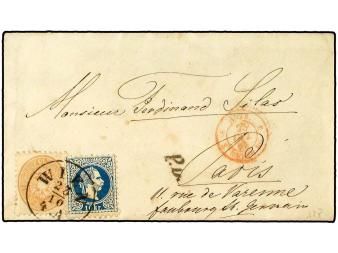 Monsieur Ferdinand Silas
P.D.
Paris
11. rue de Varenne
faubourg St. Germain
WIEN
22
10
10 KR